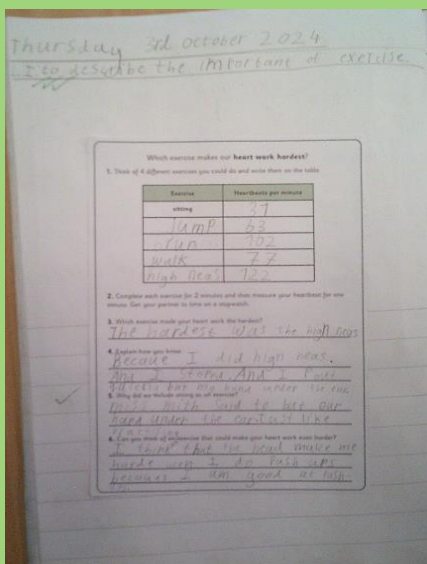 Thursday 3rd October 2024
I to describe the important of exercise.
Which exercise makes our heart work hardest?
1. Think of 4 different exercises you could do and write them on the table
Exercise Heartbeats per minute
sitting 31
Jump 63
run 102
walk 77
high neas 122
2. Complete each exercise for 2 minutes and then measure your heartbeat for one
minute. Get your partner to time on a stopwatch.
3. Which exercise made your heart work the hardest?
The hardest was the high neas
4. Explain how you know.
Becaue I did high neas.
And I And I
my hand under
5. Why did we include sitting as an exercise?
miss said to our
hand under the Just like
6. Can you think of an exercise that could make your heart work even harder?
I think that the head make me
harde I do Push ups
because I am good at Push